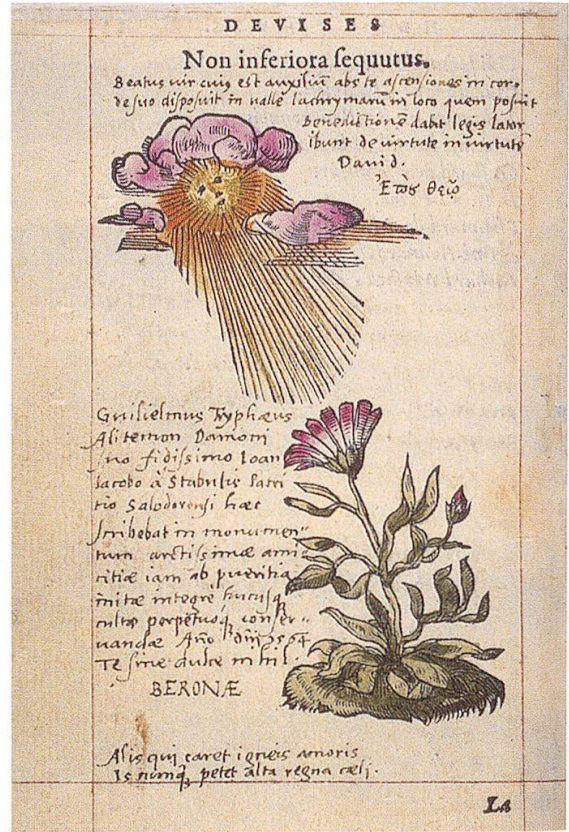 DEVISES
Non inferiora sequutus.
Beatus vir cuiꝰ est auxiliū abs te ascensiones in cor,
de suo disposuit in valle lachrymarū in loco quem posuit
Benedictionē dabit legis lator
ibunt de virtute in virtutē
David.
θεῷ
Guilielmus Tryphæus
Damoni
suo fidissimo Ioan
Iacobo à Stabulis Patri
tio Salodorensi hæc
scribebat in monumen„
tum arctissimæ ami
citiæ iam ab pueritia
initæ integre hucusq̨
cultæ perpetuoq̨ conser„
uandæ Año 1564
Te sine dulce nihil.
BERONÆ
Alis qui caret igneis amoris
Is nunq̨ petet alta regna cæli.
La